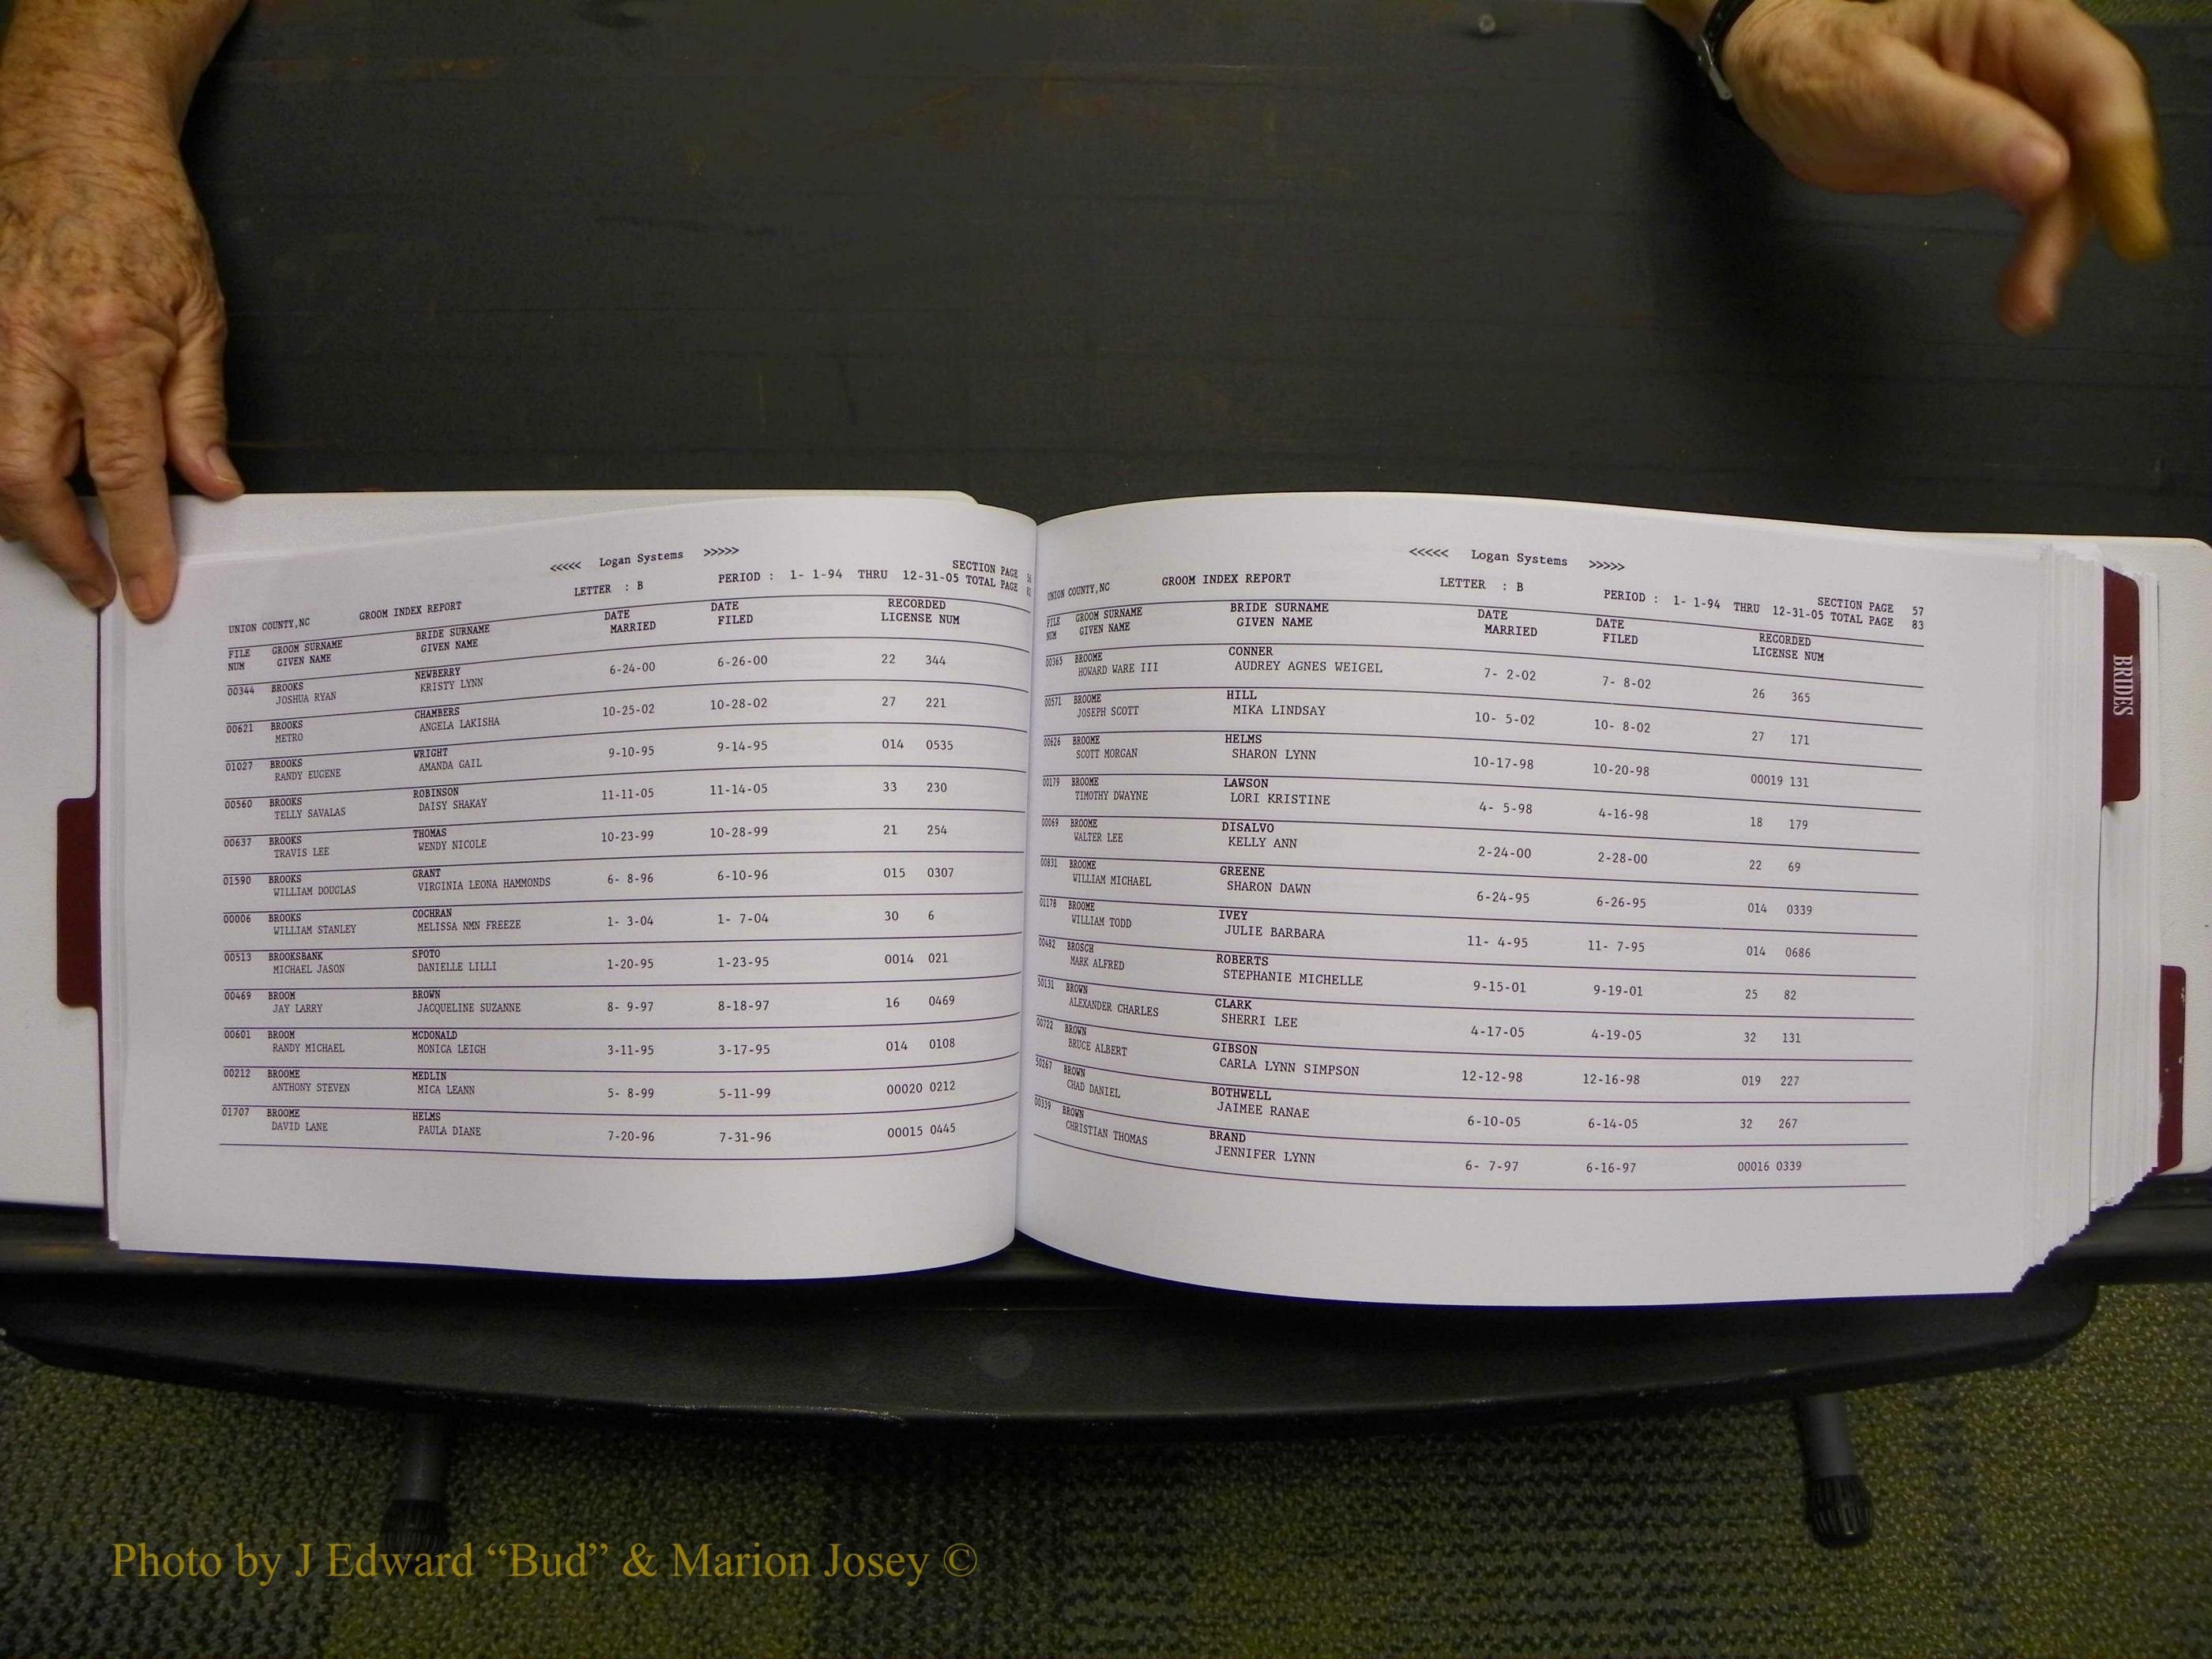 <<<<< Logan Systems >>>>>
SECTION PAGE 56
UNION COUNTY,NC GROOM INDEX REPORT LETTER : B PERIOD : 1- 1-94 THRU 12-31-05 TOTAL PAGE
FILE GROOM SURNAME BRIDE SURNAME DATE DATE RECORDED
NUM GIVEN NAME GIVEN NAME MARRIED FILED LICENSE NUM
00344 BROOKS NEWBERRY 6-24-00 6-26-00 22 344
JOSHUA RYAN KRISTY LYNN
00621 BROOKS CHAMBERS 10-25-02 10-28-02 27 221
METRO ANGELA LAKISHA
01027 BROOKS WRIGHT 9-10-95 9-14-95 014 0535
RANDY EUGENE AMANDA GAIL
00560 BROOKS ROBINSON 11-11-05 11-14-05 33 230
TELLY SAVALAS DAISY SHAKAY
00637 BROOKS THOMAS 10-23-99 10-28-99 21 254
TRAVIS LEE WENDY NICOLE
01590 BROOKS GRANT 6- 8-96 6-10-96 015 0307
WILLIAM DOUGLAS VIRGINIA LEONA HAMMONDS
00006 BROOKS COCHRAN 1- 3-04 1- 7-04 30 6
WILLIAM STANLEY MELISSA NMN FREEZE
00513 BROOKSBANK SPOTO 1-20-95 1-23-95 0014 021
MICHAEL JASON DANIELLE LILLI
00469 BROOM BROWN 8- 9-97 8-18-97 16 0469
JAY LARRY JACQUELINE SUZANNE
00601 BROOM MCDONALD 3-11-95 3-17-95 014 0108
RANDY MICHAEL MONICA LEIGH
00212 BROOME MEDLIN 5- 8-99 5-11-99 00020 0212
ANTHONY STEVEN MICA LEANN
01707 BROOME HELMS 7-20-96 7-31-96 00015 0445
DAVID LANE PAULA DIANE
<<<<< Logan Systems >>>>>
SECTION PAGE 57
UNION COUNTY,NC GROOM INDEX REPORT LETTER : B PERIOD : 1- 1-94 THRU 12-31-05 TOTAL PAGE 83
FILE GROOM SURNAME BRIDE SURNAME DATE DATE RECORDED
NUM GIVEN NAME GIVEN NAME MARRIED FILED LICENSE NUM
00365 BROOME CONNER 7- 2-02 7- 8-02 26 365
HOWARD WARE III AUDREY AGNES WEIGEL
00571 BROOME HILL 10- 5-02 10- 8-02 27 171
JOSEPH SCOTT MIKA LINDSAY
00626 BROOME HELMS 10-17-98 10-20-98 00019 131
SCOTT MORGAN SHARON LYNN
00179 BROOME LAWSON 4- 5-98 4-16-98 18 179
TIMOTHY DWAYNE LORI KRISTINE
00069 BROOME DISALVO 2-24-00 2-28-00 22 69
WALTER LEE KELLY ANN
00831 BROOME GREENE 6-24-95 6-26-95 014 0339
WILLIAM MICHAEL SHARON DAWN
01178 BROOME IVEY 11- 4-95 11- 7-95 014 0686
WILLIAM TODD JULIE BARBARA
00482 BROSCH ROBERTS 9-15-01 9-19-01 25 82
MARK ALFRED STEPHANIE MICHELLE
50131 BROWN CLARK 4-17-05 4-19-05 32 131
ALEXANDER CHARLES SHERRI LEE
00722 BROWN GIBSON 12-12-98 12-16-98 019 227
BRUCE ALBERT CARLA LYNN SIMPSON
50267 BROWN BOTHWELL 6-10-05 6-14-05 32 267
CHAD DANIEL JAIMEE RANAE
00339 BROWN BRAND 6- 7-97 6-16-97 00016 0339
CHRISTIAN THOMAS JENNIFER LYNN
BRIDES
Photo by J Edward “Bud” & Marion Josey ©